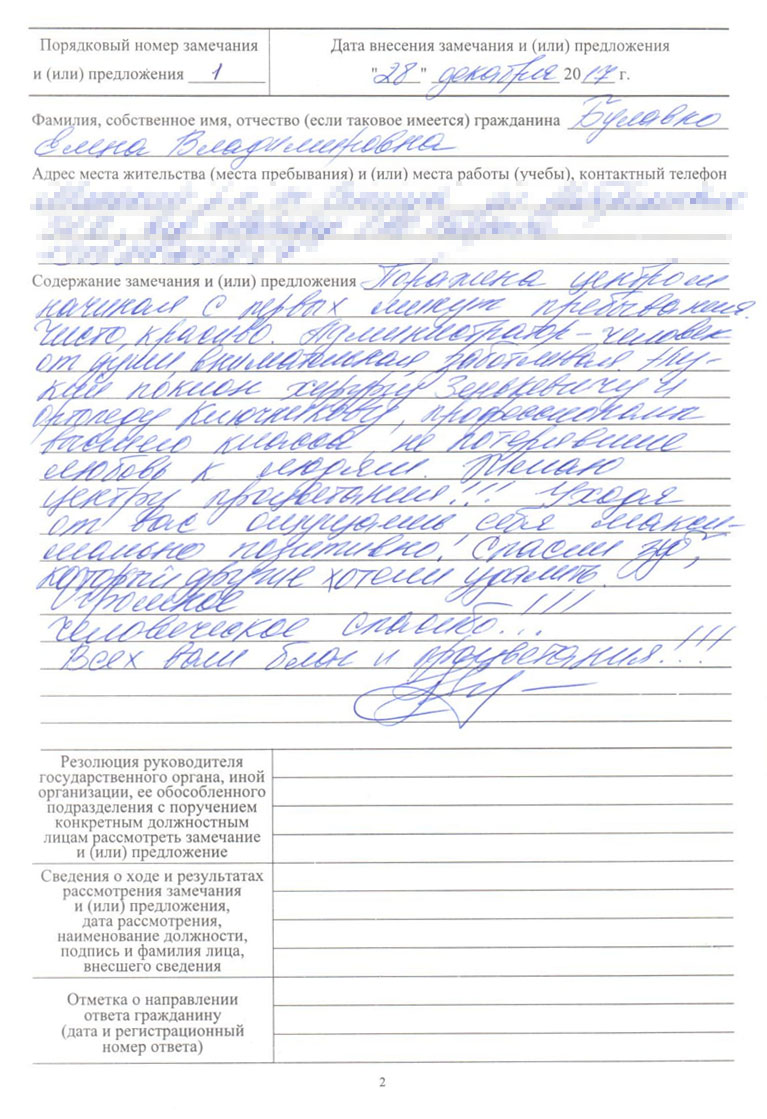 Порядковый номер замечания
и (или) предложения 1
Дата внесения замечания и (или) предложения
"28" декабря 2017 г.
Фамилия, собственное имя, отчество (если таковое имеется) гражданина Булавко
Елена Владимировна
Адрес места жительства (места пребывания) и (или) места работы (учебы), контактный телефон
Содержание замечания и (или) предложения Поражена центром
начиная с первых минут пребывания.
Чисто, красиво. Администратор – человек
от души внимательная заботливая. Низ-
кий поклон хирургу Зенькевичу и
ортопеду Ключникову, профессионалы
высшего класса, не потерявшие
любовь к людям. Желаю
центру процветания!!! Уходя
от вас ощущаешь себя макси-
мально позитивно! Спасли зуб,
который другие хотели удалить.
Огромное
человеческое спасибо!!!
Всех вам благ и процветания!!!
Резолюция руководителя
государственного органа, иной
организации, ее обособленного
подразделения с поручением
конкретным должностным
лицам рассмотреть замечание
и (или) предложение
Сведения о ходе и результатах
рассмотрения замечания
и (или) предложения,
дата рассмотрения,
наименование должности,
подпись и фамилия лица,
внесшего сведения
Отметка о направлении
ответа гражданину
(дата и регистрационный
номер ответа)
2